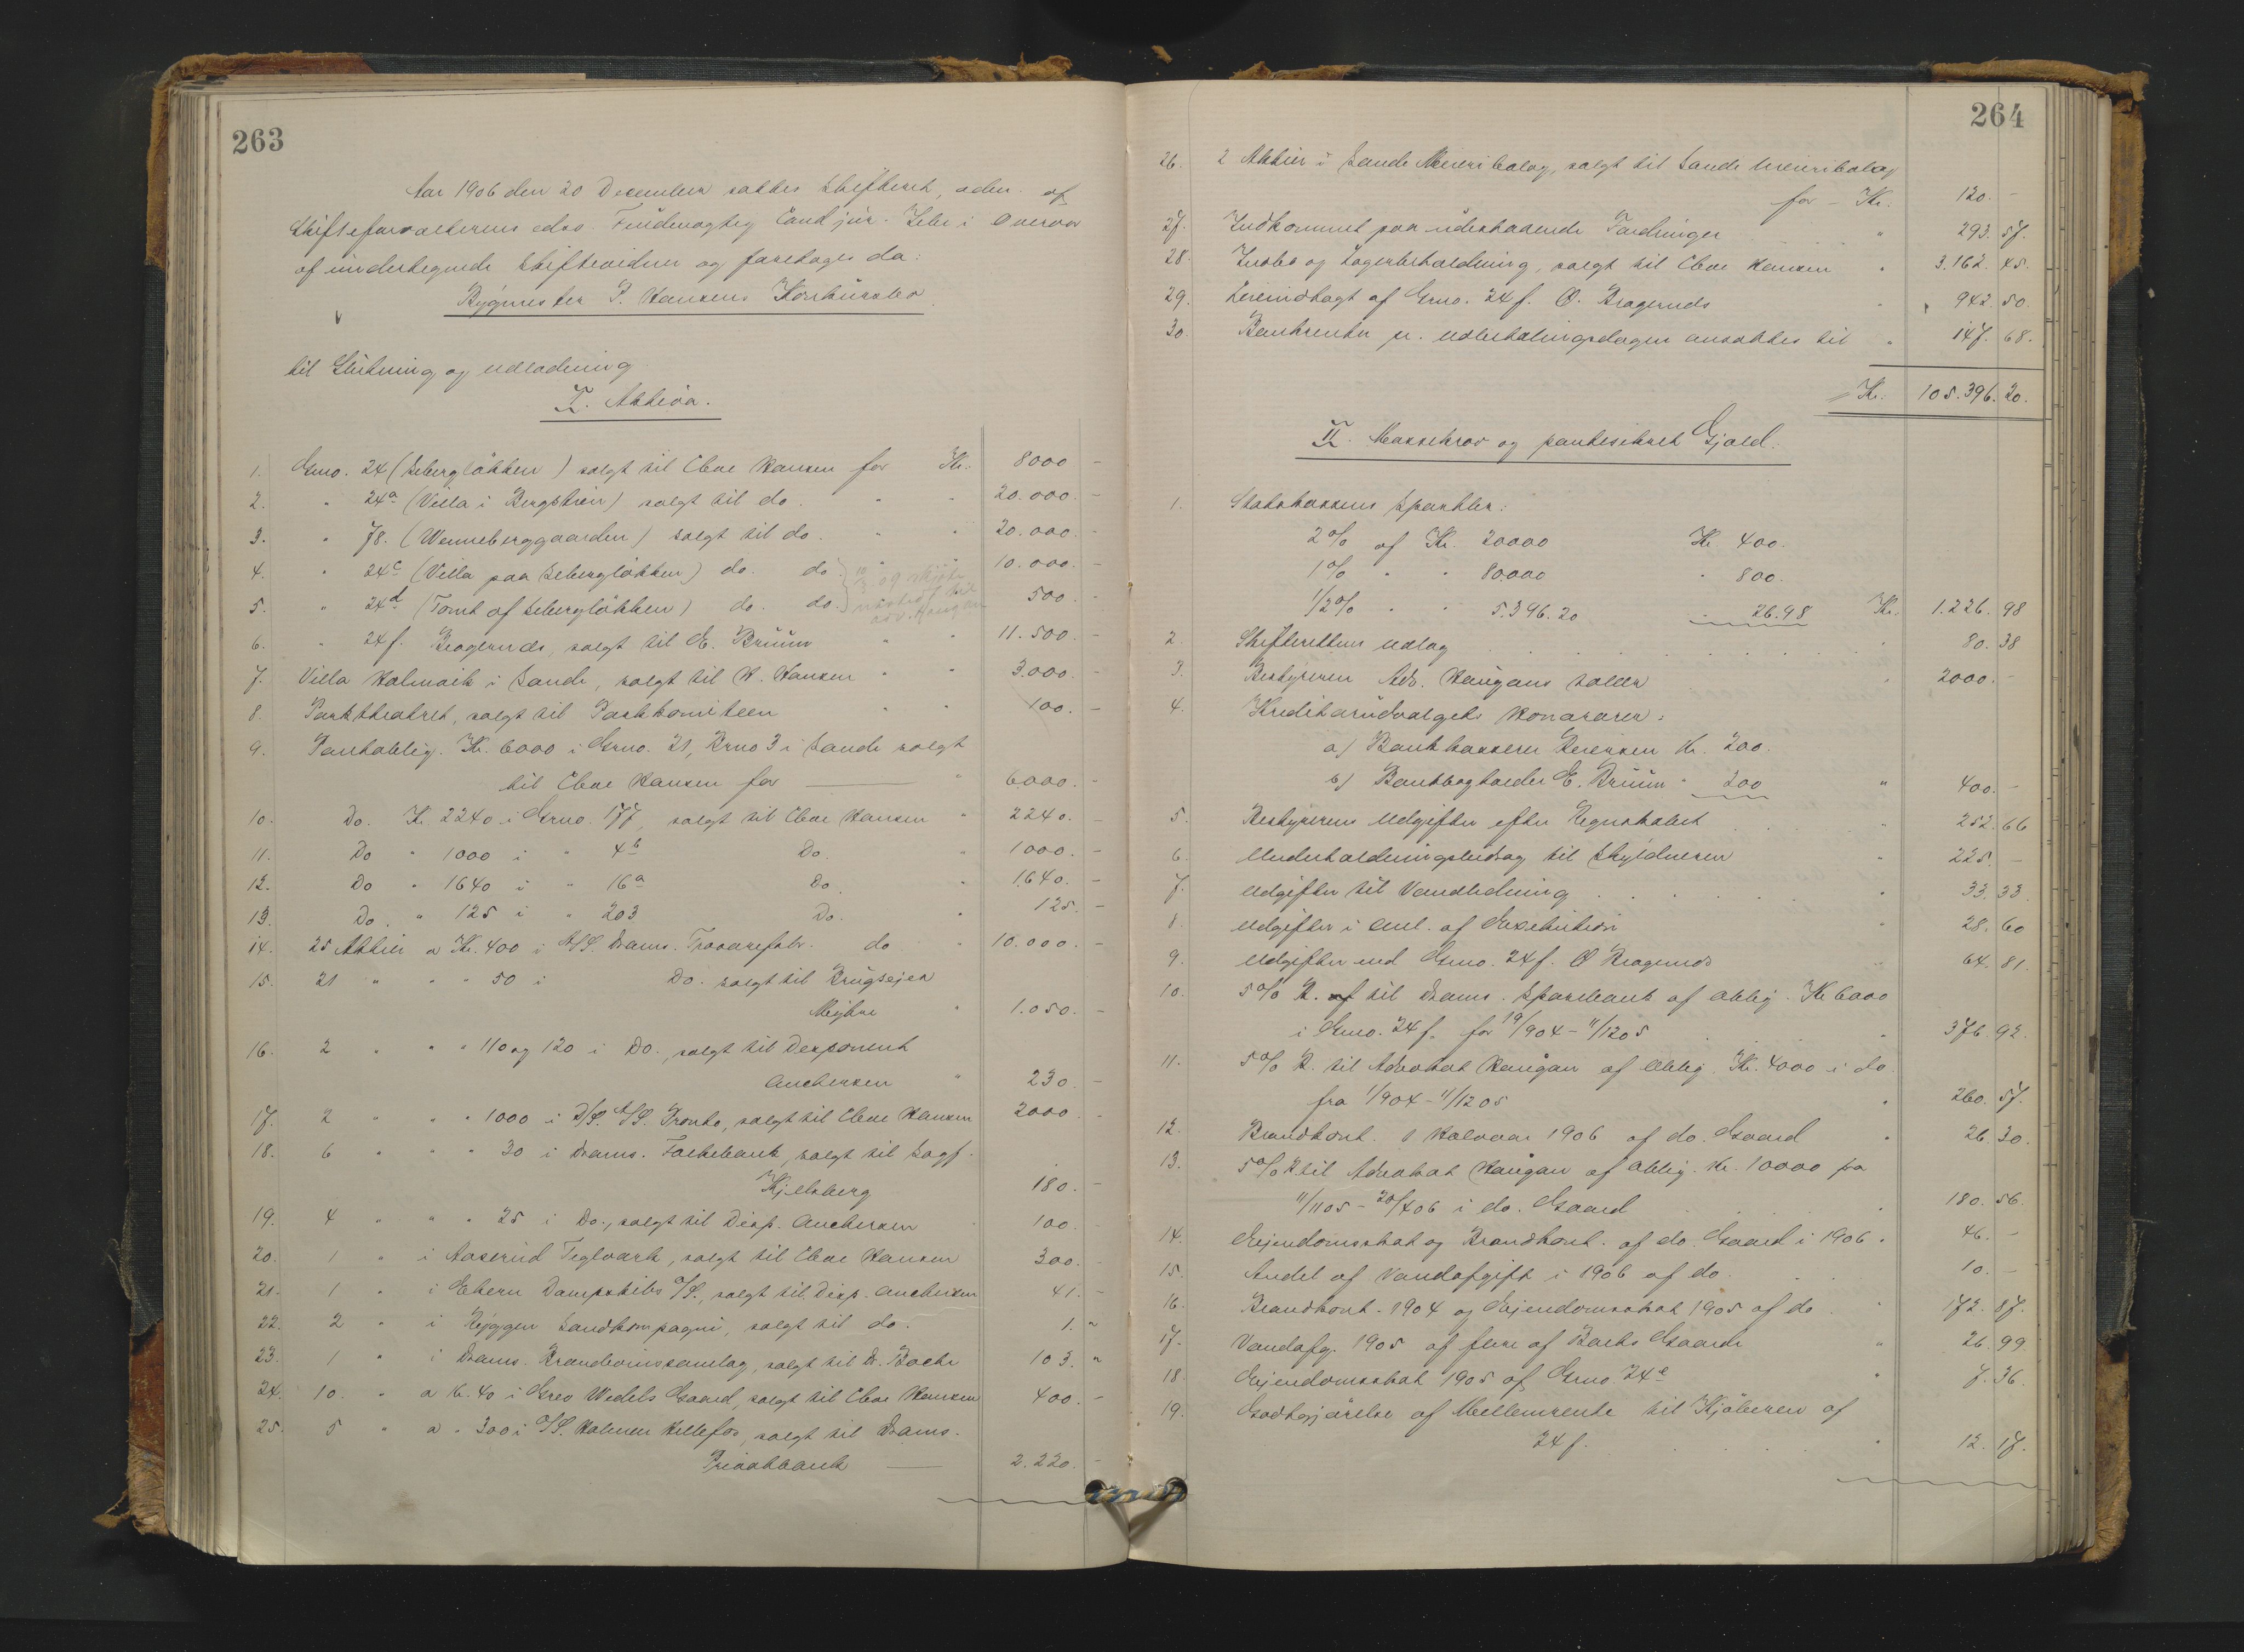 263
Aar 1906 den 20 December sattes Skifteret, adm. af
Skifteforvalterens edsv. Fuldmægtig Cand jur. Lehr i Overvær
af undertegnede Skiftevidner og foretoges da:
Bygmester P. Hansens Konkursbo
til Slutning og Udlodning
I. Aktiva.
1. Gno. 24 (Sebergløkken) solgt til Eleve Hansen for Kr. 8000 -
2. " 24a (Villa i Bergstien) solgt til do. " " 20.000. -
3. " 78. (Wenneberggaarden) solgt til do. " " 20.000. -
4. " 24c (Villa paa Seberg løkken) do. do. " " 10.000. -
5. " 24d (Tomt af Seberg løkken) do. do. 500. -
6. " 24f. Bragernes, solgt til E. Bruun " " 11.500. -
7. Villa Holmvik i Sande, solgt til H. Hansen " " 3.000. -
8. Parktheatret, solgt til Parkkomiteen " " 100. -
9. Pantoblig. Kr. 6000 i Grno. 21, Brno 3 i Sande solgt
til Eleve Hansen for " 6000. -
10. Do. Kr. 2240 i Grno. 177, solgt til Eleve Hansen " 2240. -
11. Do " 1000 i " 4b Do. " 1000. -
12. Do " 1640 i " 16a Do. " 1640. -
13. Do. " 125 i " 203 Do. " 125. -
14. 25 Aktier a Kr. 400 i A/S. Drams. Trævarefabr. do " 10.000. -
15. 21 " " " 50 i Do. solgt til Brugseier
Myhre " 1.050. -
16. 2 " " " 110 og 120 i Do., solgt til Disponent
Anchersen " 230. -
17. 2 " " " 1000 i D/S. A/S. Pronto, solgt til Eleve Hansen 2000. -
18. 6 " " " 30 i Drams. Folkebank, solgt til Sagf.
Kjelsberg 180. -
19. 4 " " " 25 i Do., solgt til Disp. Anchersen 100. -
20. 1 " i Aaserud Teglværk, solgt til Eleve Hansen 300. -
21. 1 " i Ekern Dampskibs A/S., solgt til Disp. Anchersen 41. -
22. 2 " i Røyggen Sandkompagni, solgt til do. 1. "
23. 1 " i Drams. Brændevinssamlag, solgt til D. Bache 103. "
24. 10. " a K. 40 i Grev Wedels Gaard, solgt til Eleve Hansen 400. -
25. 5 " a " 300 i A/S. Holmen Hellefos, solgt til Drams.
Privatbank 2.220. -
264
26. 2 Aktier i Sande Meieribolag, solgt til Sande Meieribolag
for - Kr. 120. -
27. Indkommet paa udestaaende Fordringer " 293. 57.
28. Indbo og Lagerbeholdning, solgt til Eleve Hansen " 3.162. 45.
29. Leieindtægt af Gno. 24f. Ø. Bragernes " 942. 50.
30. Bankrenter pr. Udbetalingsdagen ansættes til " 147. 68.
Kr. 105.396. 20.
II. Massekrav og pantesikret Gjæld.
1. Statskassens Sportler:
2% af Kr. 20000 Kr 400.
1% " " 80000 " 800.
1/2% " " 5.396.20 " 26.98 Kr. 1.226. 98
2. Skifterettens Udlæg " 80. 38
3. Bestyreren Adv. Haugans Salær " 2000. -
4. Kreditorudvalgets Honorarer:
a) Bankkasserer Kr. 200.
b) Bankbogholder E. Bruun " 200 " 400. -
5. Bestyrerens Udgifter efter Regnskabet " 252. 66
6. Underholdningsbidrag til Skyldneren " 225. -
7. Udgifter til Vandledning " 33. 33
8. Udgifter i Anl. af Exekution " 28. 60
9. Udgifter ved Gno. 24f. Ø Bragernes " 64. 81.
10. 5% R. af til Drams. Sparebank af Oblig. Kr 6000
i Gno. 24f. for 19/9 04 - 11/12 05 " 376. 92.
11. 5% R. til Advokat Haugan af Oblig. Kr. 4000 i do
fra 1/9 04 - 11/12 05 " 260. 57.
12. Brandkont. 1 Halvaar 1906 af do. Gaard " 26. 30.
13. 5% R til Advokat Haugan af Oblig. Kr. 10000 fra
11/11 05 - 20/4 06 i do. Gaard " 180. 56.
14. Eiendomsskat og Brandkont. af do. Gaard i 1906 " 46. -
15. Andel af Vandafgift i 1906 af do. 10. -
16. Brandkont. 1904 og Eiendomsskat 1905 af do. " 172. 87.
17. Vandafg. 1905 af flere af Boets Gaarde " 26. 99
18 Eiendomsskat 1905 af Gno. 24e " 7. 36.
19. Godtgjørelse af Mellemrente til Kjøberen af
24f. " 12. 17.